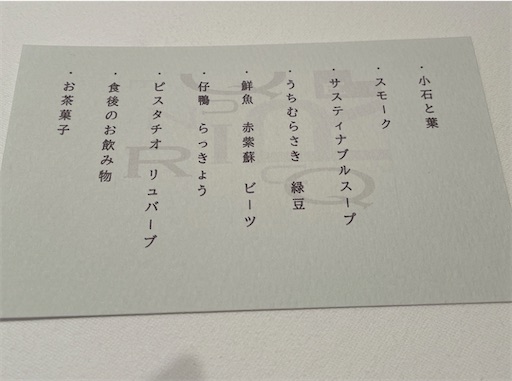 ・小石と葉
・スモーク
・サスティナブルスープ
・うちむらさき 緑豆
・鮮魚 赤紫蘇 ビーツ
・仔鴨 らっきょう
・ピスタチオ リュバーブ
・食後のお飲み物
・お茶菓子